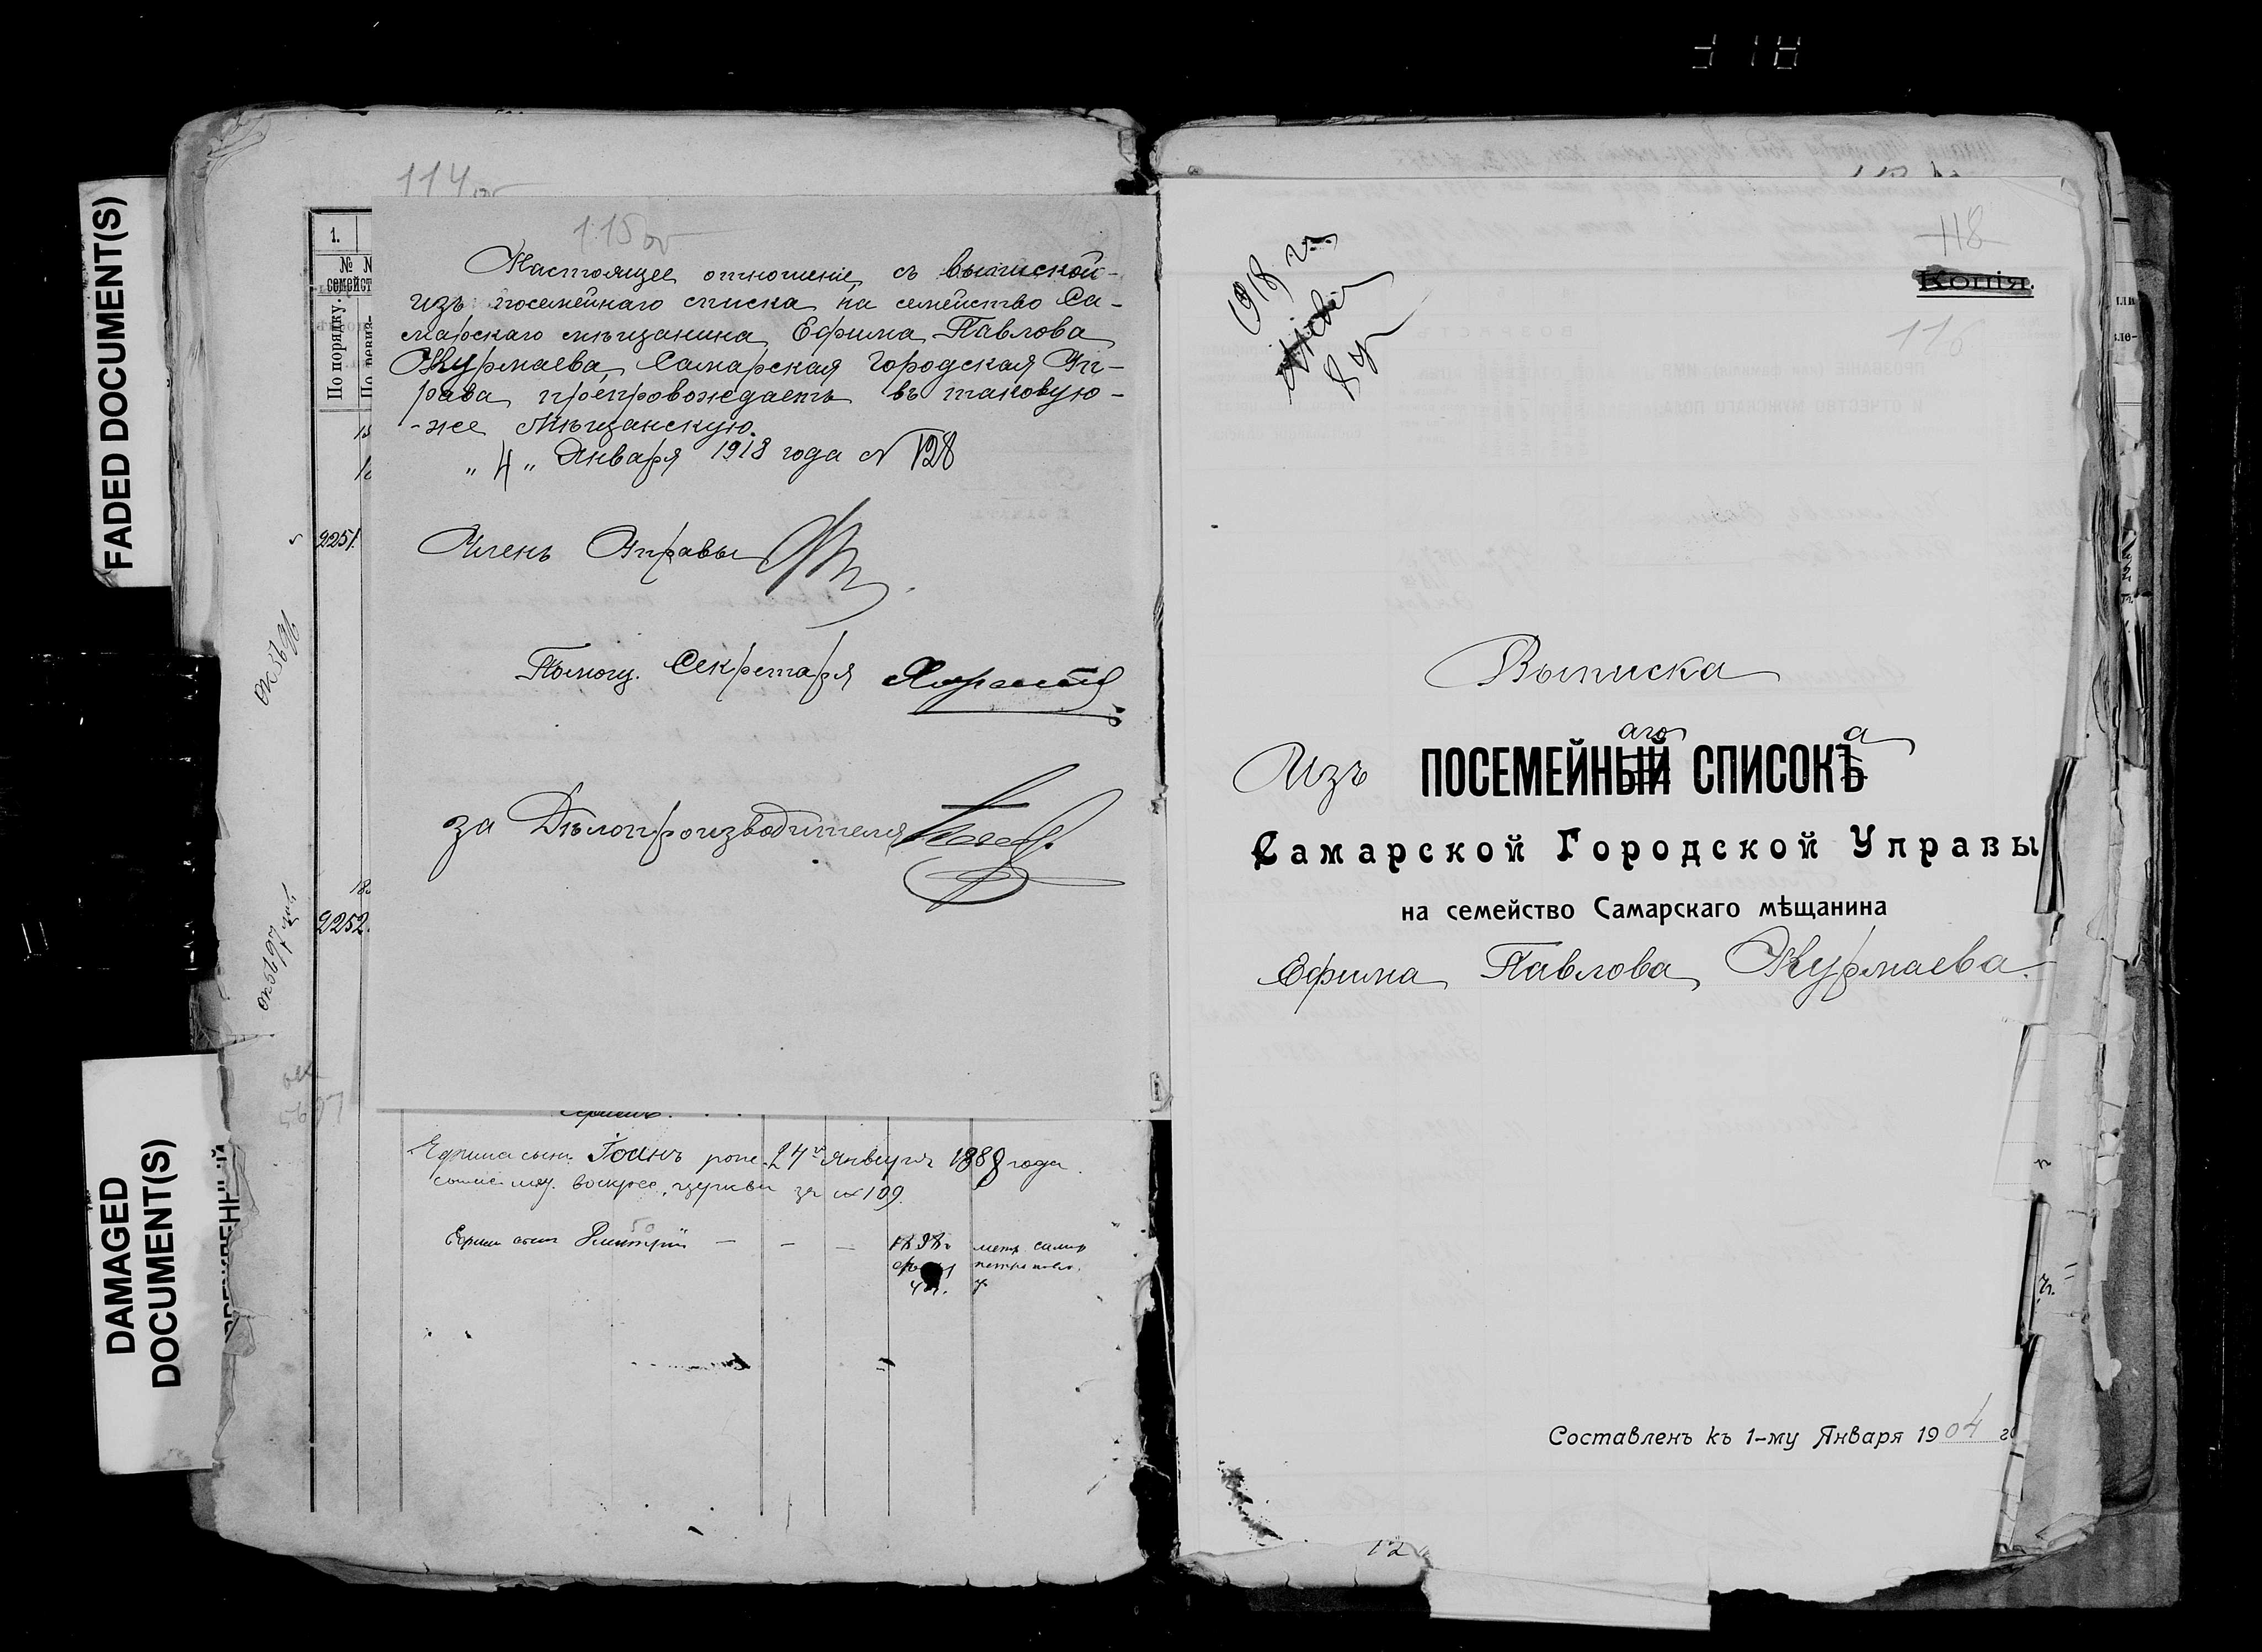 FADED DOCUMENT(S)
DAMAGED
DOCUMENT(S)
114 об
1.
№ №
семейст
По порядку.
2251.
2252.
115 об
Настоящее отношеніе, съ выпиской
изъ посемейнаго списка на семейство Са-
марскаго мѣщанина, Ефима Павлова
Журмаева, Самарская Городская Уп-
рава, препровождаетъ въ таковую-
-же Мѣщанскую.
„ 4 „ Января 1918 года № 128
Членъ Управы
Помощ. Секретаря
за Дѣлопроизводителя
Ефима сынъ Іоаннъ 24го января 1888 года.
воскрес. церкви за № 109.
Ефима сынъ Дмитрій — — —
118
Копія.
116
1918 г.
Выписка
Изъ ПОСЕМЕЙНЫЙ аго СПИСОКЪ а
Самарской Городской Управы
на семейство Самарскаго мѣщанина
Ефима Павлова Журмаева.
Составленъ къ 1-му Января 1904 го
12